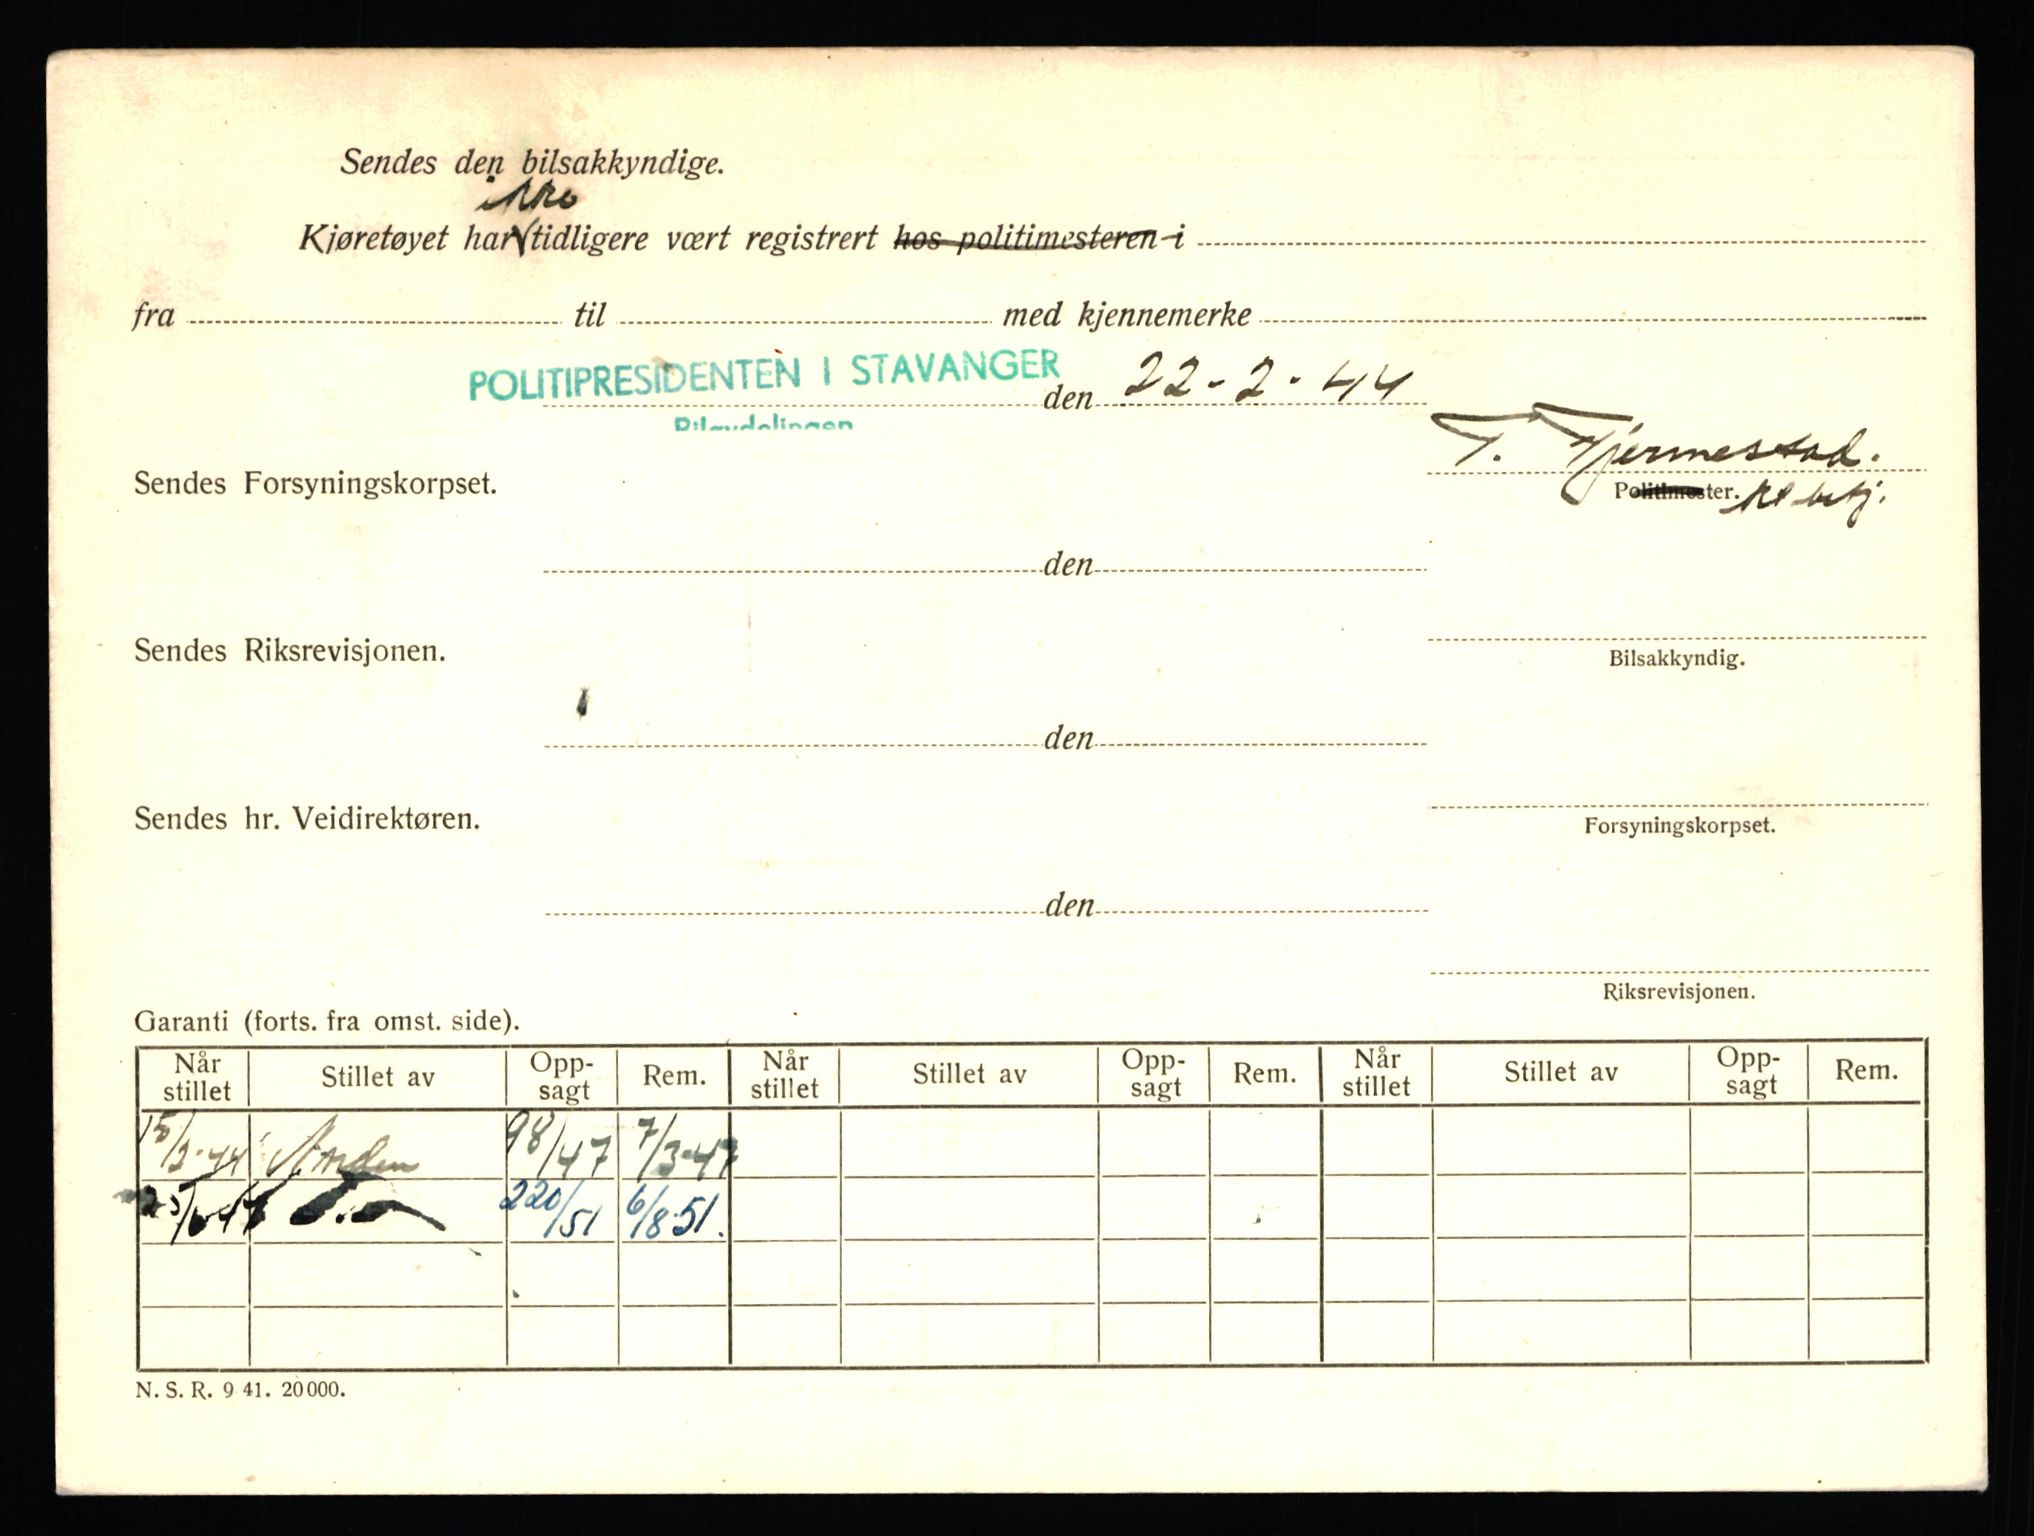 Sendes den bilsakkyndige.
ikke
Kjøretøyet har tidligere vært registrert hos politimesteren i
fra til med kjennemerke
POLITIPRESIDENTEN I STAVANGER den 22-2-44
Bilavdelingen
T. Tjermestad.
Sendes Forsyningskorpset.
Politimester.
den
Sendes Riksrevisjonen.
Bilsakkyndig.
den
Sendes hr. Veidirektøren.
Forsyningskorpset.
den
Riksrevisjonen.
Garanti (forts. fra omst. side).
Når stillet Stillet av Opp-sagt Rem. Når stillet Stillet av Opp-sagt Rem. Når stillet Stillet av Opp-sagt Rem.
15/2-44 Norden 98/47 7/3-47
220/51 6/8-51.
N. S. R. 9 41. 20000.